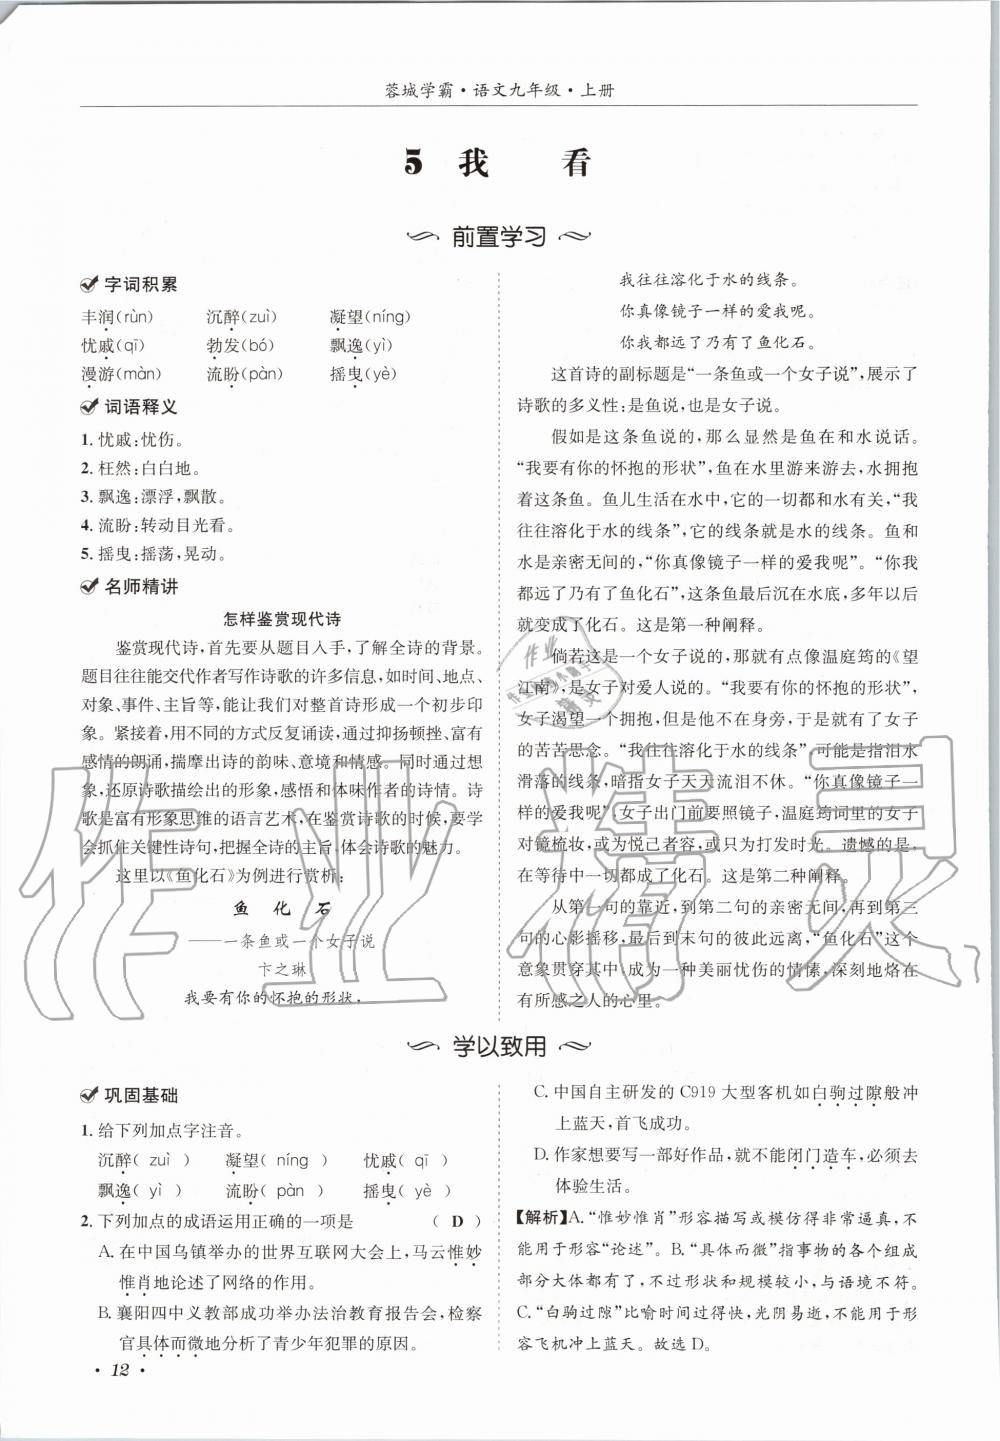 蓉城学霸·语文九年级·上册
5 我 看
前置学习
字词积累
丰润(rùn) 沉醉(zuì) 凝望(níng)
忧戚(qī) 勃发(bó) 飘逸(yì)
漫游(màn) 流盼(pàn) 摇曳(yè)
词语释义
1. 忧戚:忧伤。
2. 枉然:白白地。
3. 飘逸:漂浮,飘散。
4. 流盼:转动目光看。
5. 摇曳:摇荡,晃动。
名师精讲
怎样鉴赏现代诗
鉴赏现代诗,首先要从题目入手,了解全诗的背景。
题目往往能交代作者写作诗歌的许多信息,如时间、地点、
对象、事件、主旨等,能让我们对整首诗形成一个初步印
象。紧接着,用不同的方式反复诵读,通过抑扬顿挫、富有
感情的朗诵,揣摩出诗的韵味、意境和情感。同时通过想
象,还原诗歌描绘出的形象,感悟和体味作者的诗情。诗
歌是富有形象思维的语言艺术,在鉴赏诗歌的时候,要学
会抓住关键性诗句,把握全诗的主旨,体会诗歌的魅力。
这里以《鱼化石》为例进行赏析:
鱼 化 石
——一条鱼或一个女子说
卞之琳
我要有你的怀抱的形状,
我往往溶化于水的线条。
你真像镜子一样的爱我呢。
你我都远了乃有了鱼化石。
这首诗的副标题是“一条鱼或一个女子说”,展示了
诗歌的多义性:是鱼说,也是女子说。
假如是这条鱼说的,那么显然是鱼在和水说话。
“我要有你的怀抱的形状”,鱼在水里游来游去,水拥抱
着这条鱼。鱼儿生活在水中,它的一切都和水有关,“我
往往溶化于水的线条”,它的线条就是水的线条。鱼和
水是亲密无间的,“你真像镜子一样的爱我呢”。“你我
都远了乃有了鱼化石”,这条鱼最后沉在水底,多年以后
就变成了化石。这是第一种阐释。
倘若这是一个女子说的,那就有点像温庭筠的《望
江南》,是女子对爱人说的。“我要有你的怀抱的形状”,
女子渴望一个拥抱,但是他不在身旁,于是就有了女子
的苦苦思念。“我往往溶化于水的线条”可能是指泪水
滑落的线条,暗指女子天天流泪不休。“你真像镜子一
样的爱我呢”,女子出门前要照镜子,温庭筠词里的女子
对镜梳妆,或为悦己者容,或只为打发时光。遗憾的是,
在等待中一切都成了化石。这是第二种阐释。
从第一句的靠近,到第二句的亲密无间,再到第三
句的心影摇移,最后到末句的彼此远离,“鱼化石”这个
意象贯穿其中,成为一种美丽忧伤的情愫,深刻地烙在
有所感之人的心里。
学以致用
巩固基础
1. 给下列加点字注音。
沉醉( zuì ) 凝望( níng ) 忧戚( qī )
飘逸( yì ) 流盼( pàn ) 摇曳( yè )
2. 下列加点的成语运用正确的一项是 ( D )
A. 在中国乌镇举办的世界互联网大会上,马云惟妙
惟肖地论述了网络的作用。
B. 襄阳四中义教部成功举办法治教育报告会,检察
官具体而微地分析了青少年犯罪的原因。
C. 中国自主研发的 C919 大型客机如白驹过隙般冲
上蓝天,首飞成功。
D. 作家想要写一部好作品,就不能闭门造车,必须去
体验生活。
【解析】A.“惟妙惟肖”形容描写或模仿得非常逼真,不
能用于形容“论述”。B.“具体而微”指事物的各个组成
部分大体都有了,不过形状和规模较小,与语境不符。
C.“白驹过隙”比喻时间过得快,光阴易逝,不能用于形
容飞机冲上蓝天。故选 D。
· 12 ·
作业精灵